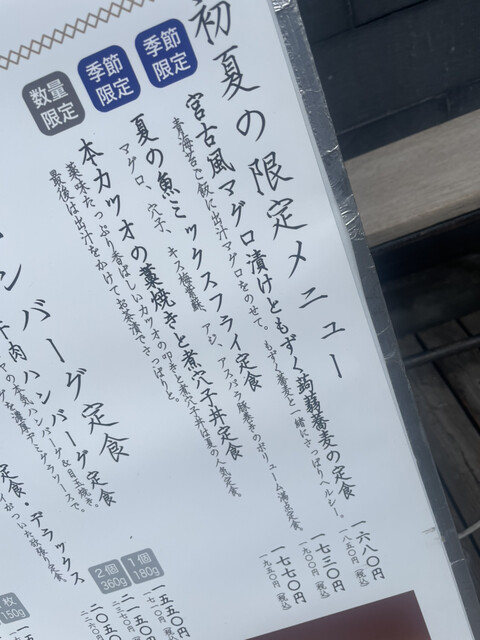 初夏の限定メニュー
季節限定
宮古風マグロ漬けともずく蒟蒻蕎麦の定食
青海苔ご飯に出汁マグロをのせて。もずく蕎麦と一緒にさっぱりヘルシー。
一六八〇円
一八五〇円(税込)
季節限定
夏の魚ミックスフライ定食
マグロ、穴子、キス梅紫蘇、アジ、アスパラ豚巻きのボリューム満点定食。
一七三〇円
一九〇〇円(税込)
数量限定
本カツオの藁焼きと煮穴子丼定食
薬味たっぷり香ばしいカツオの叩きと煮穴子丼は夏の人気定食。
最後は出汁をかけてお茶漬でさっぱりと。
一七七〇円
一九五〇円(税込)
ハンバーグ定食
牛肉ハンバーグ定食
の本気ハンバーグ&目玉焼き。
を濃厚デミグラソースで。
1個
180g
一五五〇円
(税込)
2個
360g
二一五〇円
(税込)
定食・デラックス
がついた欲張り定食。
枚
150g
二〇五〇円